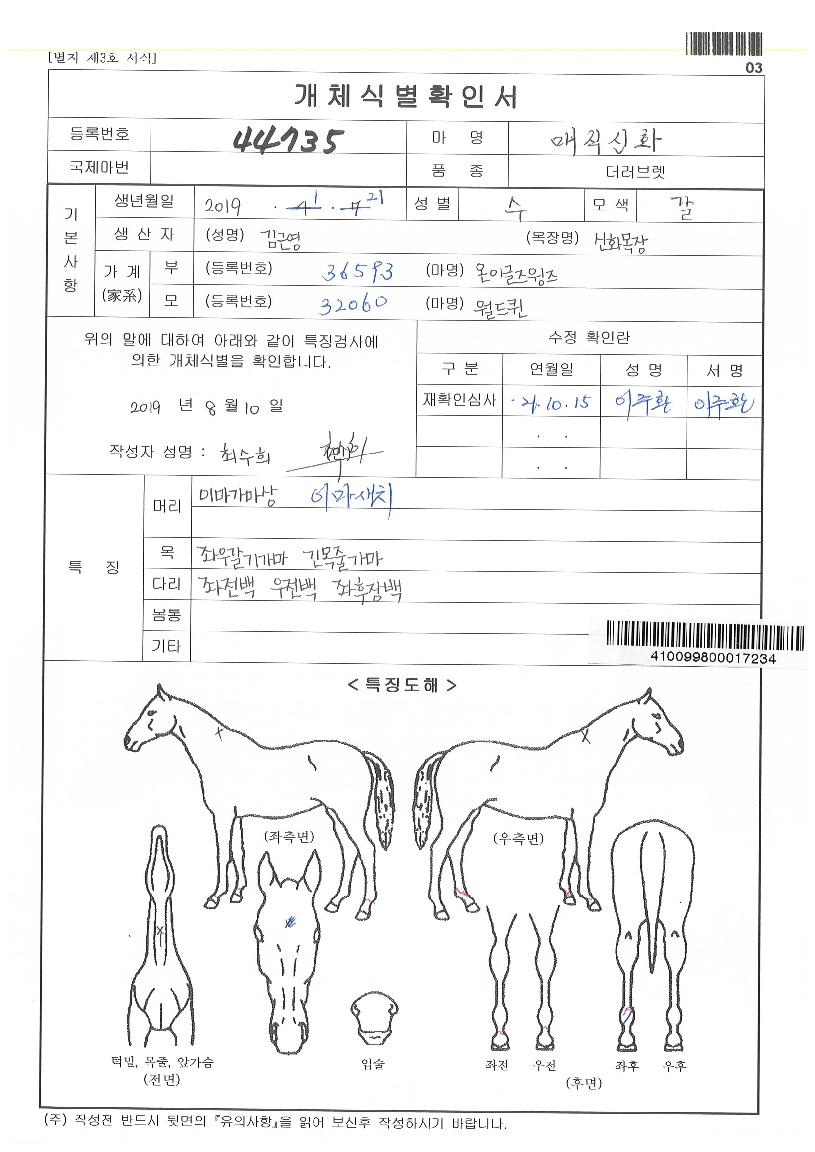 [별지 제3호 서식]
03
개체식별확인서
등록번호 44735 마 명 매직신화
국제마번 품 종 더러브렛
기본사항
생년월일 2019 . 4 1 . 7 21 성 별 수 모 색 갈
생 산 자 (성명) 김근영 (목장명) 신화목장
가 계 (家系) 부 (등록번호) 36593 (마명) 온이글즈윙즈
모 (등록번호) 32060 (마명) 월드퀸
위의 말에 대하여 아래와 같이 특징검사에
의한 개체식별을 확인합니다.
2019 년 8 월 10 일
작성자 성명 : 최수희
수정 확인란
구 분 연월일 성 명 서 명
재확인심사 . 21. 10. 15 이주환 이주환
. .
. .
특 징
머리 이마가마상 이마새치
목 좌우갈기가마 긴목줄가마
다리 좌전백 우전백 좌후장백
몸통
기타
410099800017234
< 특징도해 >
(좌측면) (우측면)
턱밑, 목줄, 앞가슴 입술 좌전 우전 좌후 우후
(전면) (후면)
(주) 작성전 반드시 뒷면의 『유의사항』을 읽어 보신후 작성하시기 바랍니다.